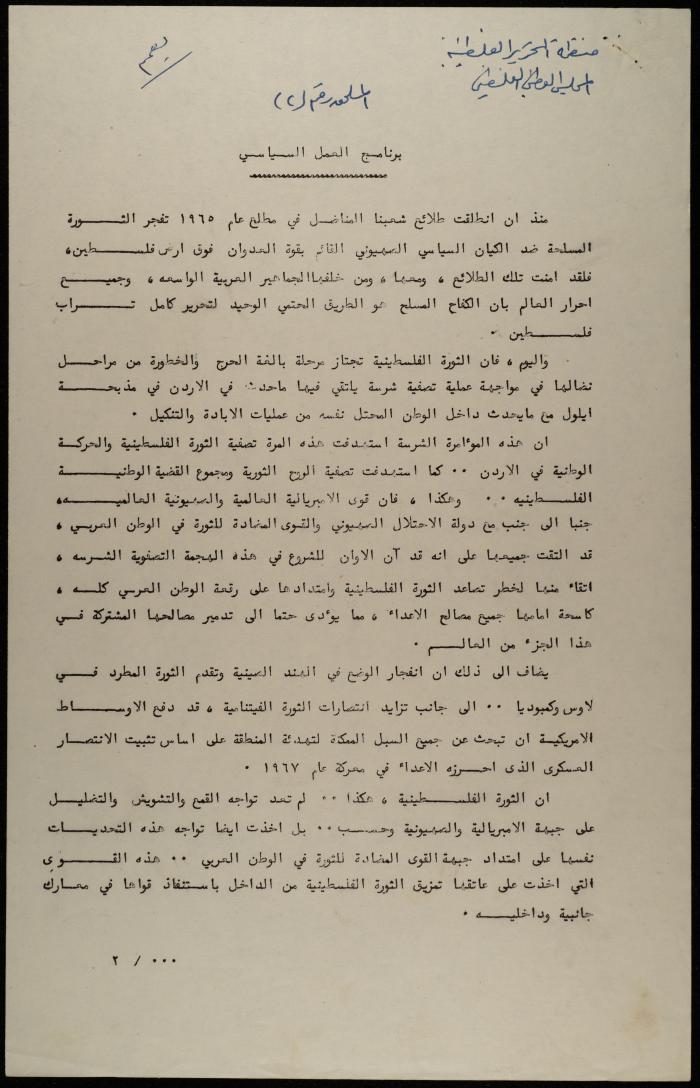 منظمة التحرير الفلسطينية
المجلس الوطني الفلسطيني
الملحق رقم (٢)
برنامج العمل السياسي
منذ ان انطلقت طلائع شعبنا المناضل في مطلع عام ١٩٦٥ تفجر الثورة
المسلحة ضد الكيان السياسي الصهيوني القائم بقوة العدوان فوق ارض فلسطين ،
فلقد امنت تلك الطلائع ، ومعها ، ومن خلفها الجماهير العربية الواسعه ، وجميع
احرار العالم بان الكفاح المسلح هو الطريق الحتمي الوحيد لتحرير كامل تراب
فلسطين ٠
واليوم ، فان الثورة الفلسطينية تجتاز مرحلة بالغة الحرج والخطورة من مراحل
نضالها في مواجهة عملية تصفية شرسة يلتقي فيها ماحدث في الاردن في مذبحة
ايلول مع مايحدث داخل الوطن المحتل نفسه من عمليات الابادة والتنكيل ٠
ان هذه المؤامرة الشرسة استهدفت هذه المرة تصفية الثورة الفلسطينية والحركة
الوطنية في الاردن ٠٠ كما استهدفت تصفية الروح الثورية ومجموع القضية الوطنية
الفلسطينيه ٠٠ وهكذا ، فان قوى الامبريالية العالمية والصهيونية العالميه ،
جنبا الى جنب مع دولة الاحتلال الصهيوني والقوى المضادة للثورة في الوطن العربي ،
قد التقت جميعها على انه قد آن الاوان للشروع في هذه الهجمة التصفوية الشرسه ،
اتقاء منها لخطر تصاعد الثورة الفلسطينية وامتدادها على رقعة الوطن العربي كله ،
كاسحة امامها جميع مصالح الاعداء ، مما يؤدى حتما الى تدمير مصالحها المشتركة في
هذا الجزء من العالم ٠
يضاف الى ذلك ان انفجار الوضع في الهند الصينية وتقدم الثورة المطرد في
لاوس وكمبوديا ٠٠ الى جانب تزايد انتصارات الثورة الفيتنامية ، قد دفع الاوساط
الامريكية ان تبحث عن جميع السبل الممكنة لتهدئة المنطقة على اساس تثبيت الانتصار
العسكرى الذى احرزه الاعداء في معركة عام ١٩٦٧ ٠
ان الثورة الفلسطينية ، هكذا ٠٠ لم تعد تواجه القمع والتشويش والتضليل
على جبهة الامبريالية والصهيونية وحسب ٠٠ بل اخذت ايضا تواجه هذه التحديات
نفسها على امتداد جبهة القوى المضادة للثورة في الوطن العربي ٠٠ هذه القوى
التي اخذت على عاتقها تمزيق الثورة الفلسطينية من الداخل باستنفاذ قواها في معارك
جانبية وداخليه ٠
٠٠٠ / ٢